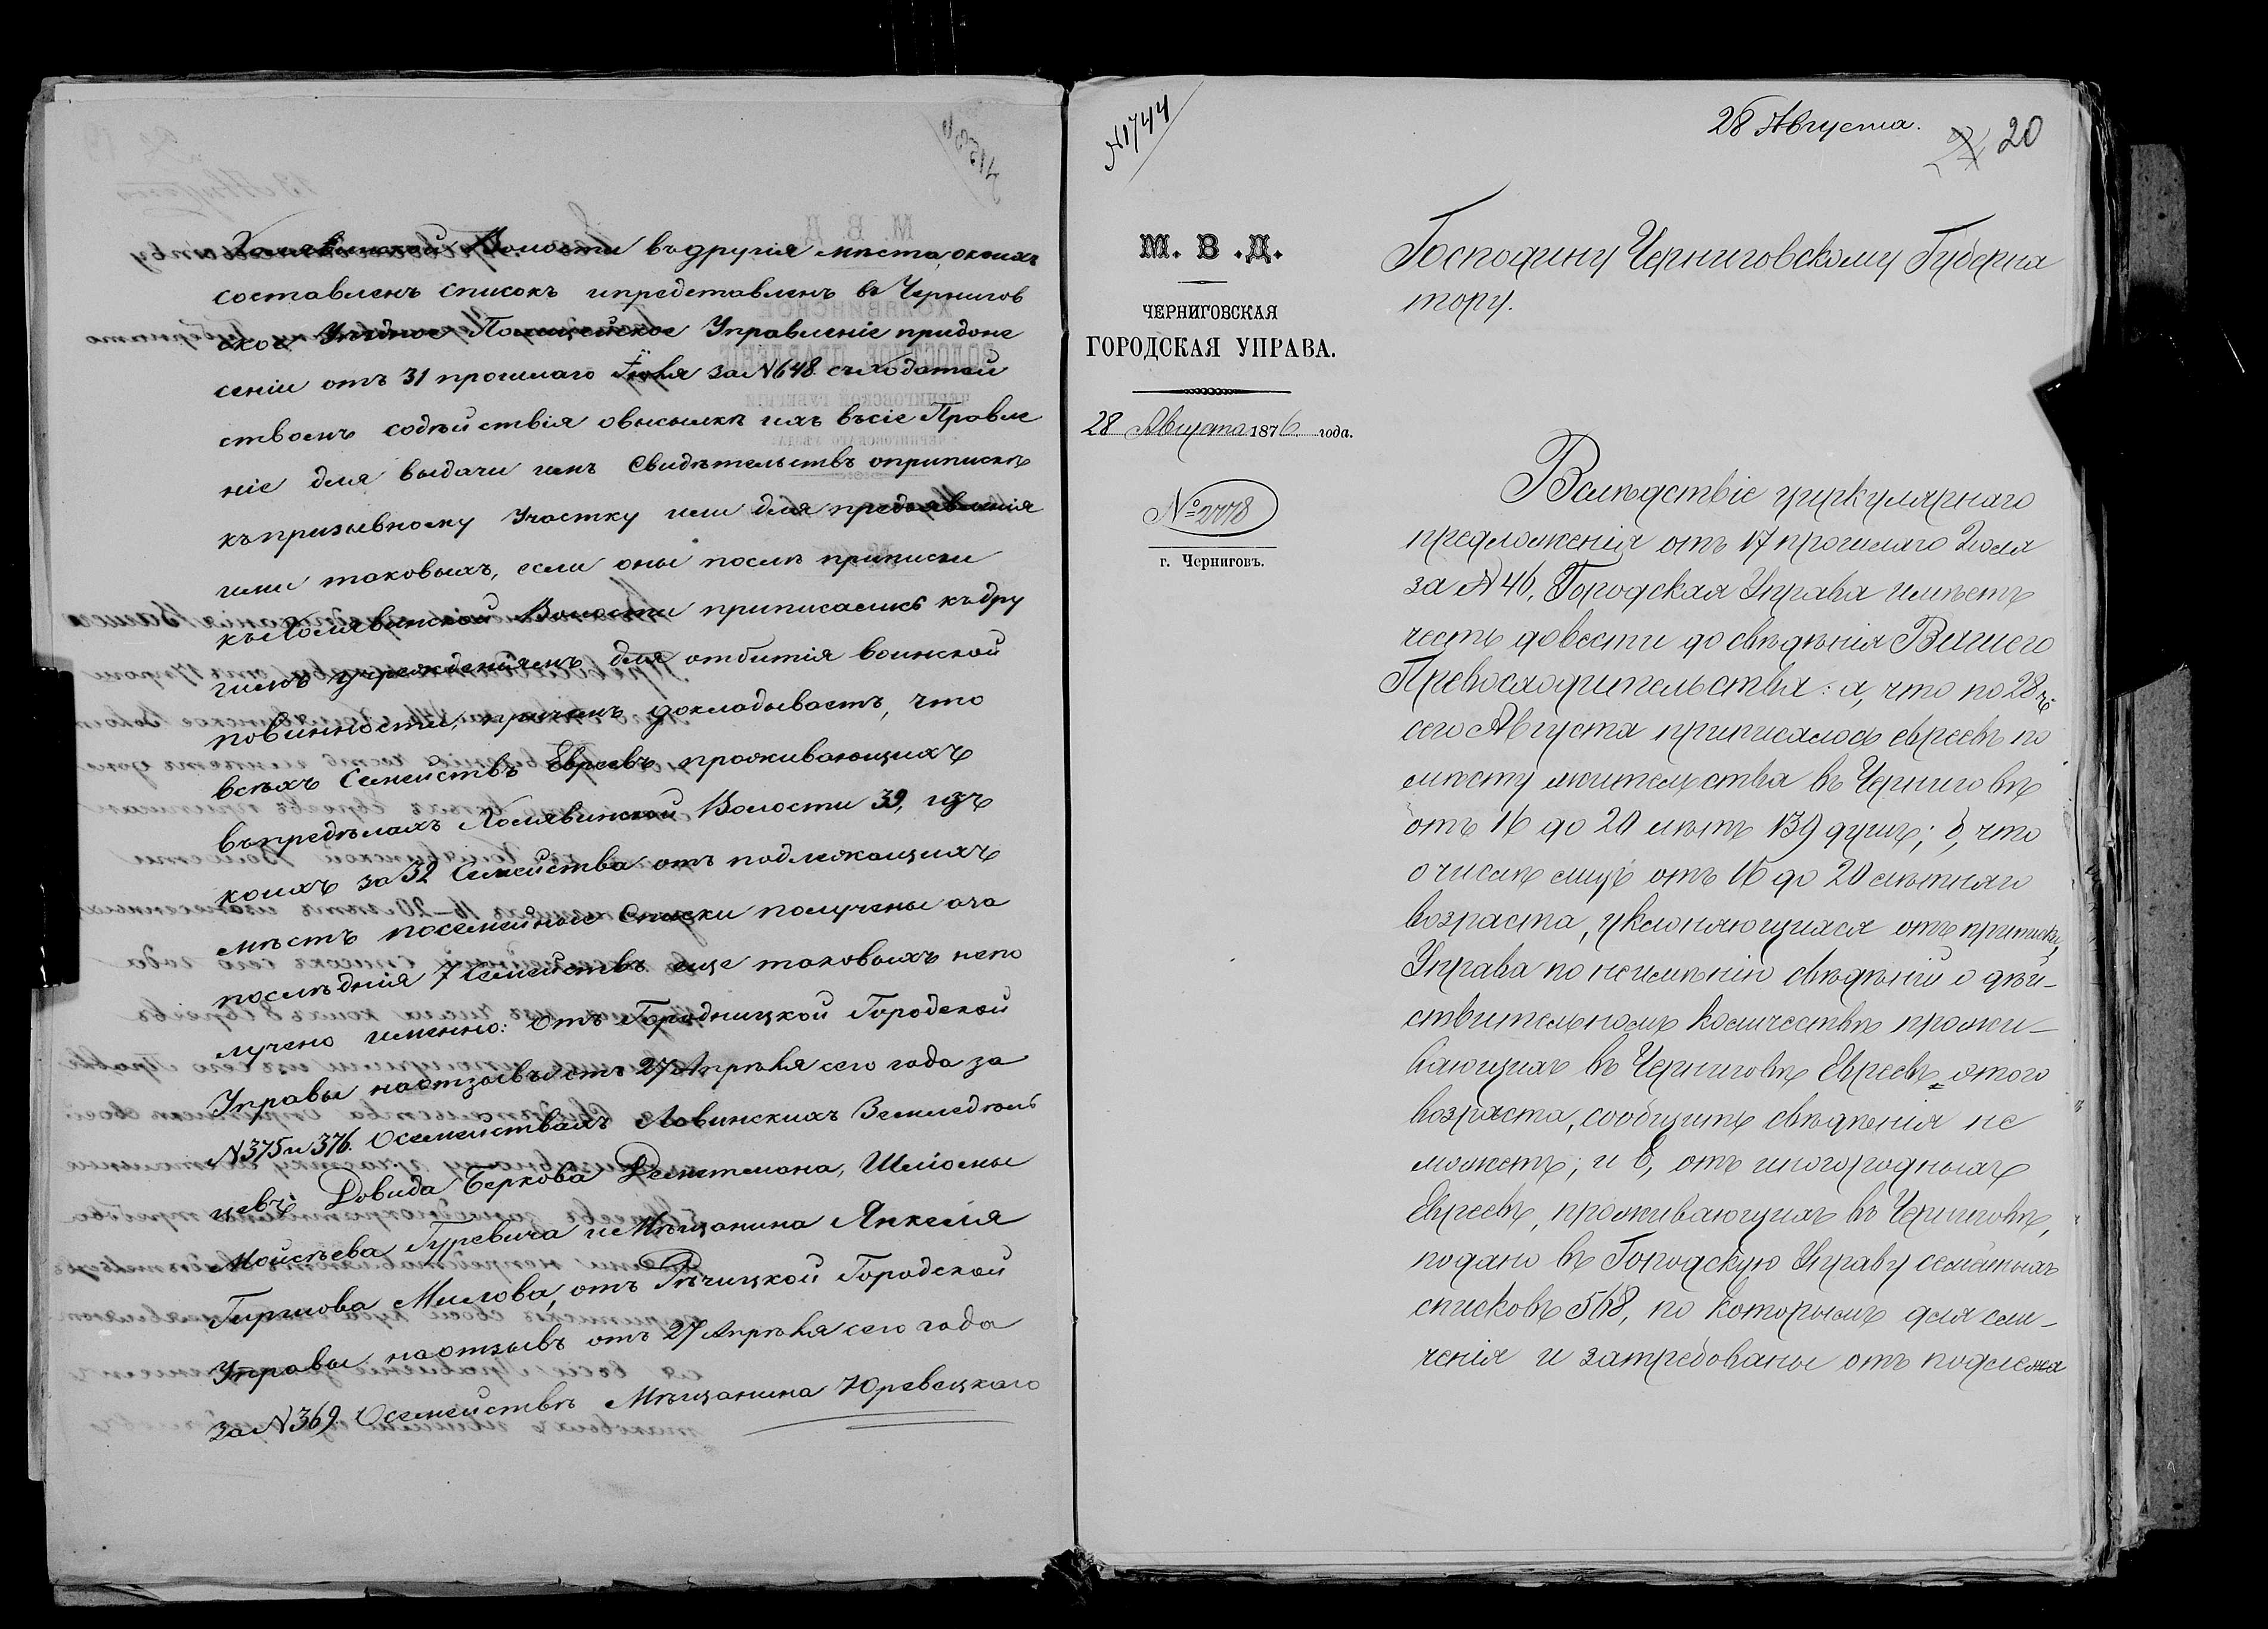 Холявинской Волости въ другія мѣста, о коихъ
составленъ списокъ и представленъ въ Чернигов
ское Уѣздное Полицейское Управленіе при доне
сеніи отъ 31 прошлаго Іюля за №648 съ ходатай
ствомъ содѣйствія о высылкѣ ихъ въ сіе Правле
ніе для выдачи имъ Свидѣтельствъ о припискѣ
къ призывному Участку или для предъявленія
ими таковыхъ, если оны послѣ приписки
къ Холявинской Волости приписались къ дру
гимъ учрежденіямъ для отбытія воинской
повинности, причемъ докладываетъ, что
всѣхъ Семействъ Евреевъ проживающихъ
въ предѣлахъ Холявинской Волости 39, изъ
коихъ за 32 Семейства отъ подлежащихъ
мѣстъ посемейные Списки получены а за
послѣднія 7 Семействъ еще таковыхъ непо
лучено именно: Отъ Городницкой Городской
Управы на отзывы отъ 27 Апрѣля сего года за
№375 и 376. О семействахъ Ловинскихъ Земледѣль
цевъ: Довида Беркова Деметмана, Шліомы
Мойсѣева Гуревича и Мѣщанина Янкеля
Гиршова Милова, отъ Рѣчицкой Городской
Управы на отзывъ отъ 27 Апрѣля сего года
за №369. О семействѣ Мѣщанина Юревецкаго
№1744
28 Августа.
20
М. В. Д.
ЧЕРНИГОВСКАЯ
ГОРОДСКАЯ УПРАВА.
28 Августа 1876 года.
№ 2778
г. Черниговъ.
Господину Черниговскому Губерна
тору.
Вслѣдствіе циркулярнаго
предложенія отъ 17 прошлаго Іюля
за №46, Городская Управа имѣетъ
честь довести до свѣдѣнія Вашего
Превосходительства: а, что по 28 ч.
сего Августа приписалось евреевъ по
мѣсту жительства въ Черниговѣ
отъ 16 до 20 лѣтъ 139 душъ; б, что
о числѣ лицъ отъ 16 до 20 лѣтняго
возраста, уклоняющихся отъ приписки,
Управа по неимѣнію свѣдѣній о дѣй-
ствительномъ количествѣ прожи-
вающихъ въ Черниговѣ Евреевъ этого
возраста, сообщить свѣдѣнія не
можетъ; и в, отъ иногородныхъ
Евреевъ, проживающихъ въ Черниговѣ,
подано въ Городскую Управу семейныхъ
списковъ 568, по которымъ для сли-
ченія и затребованы отъ подлежа